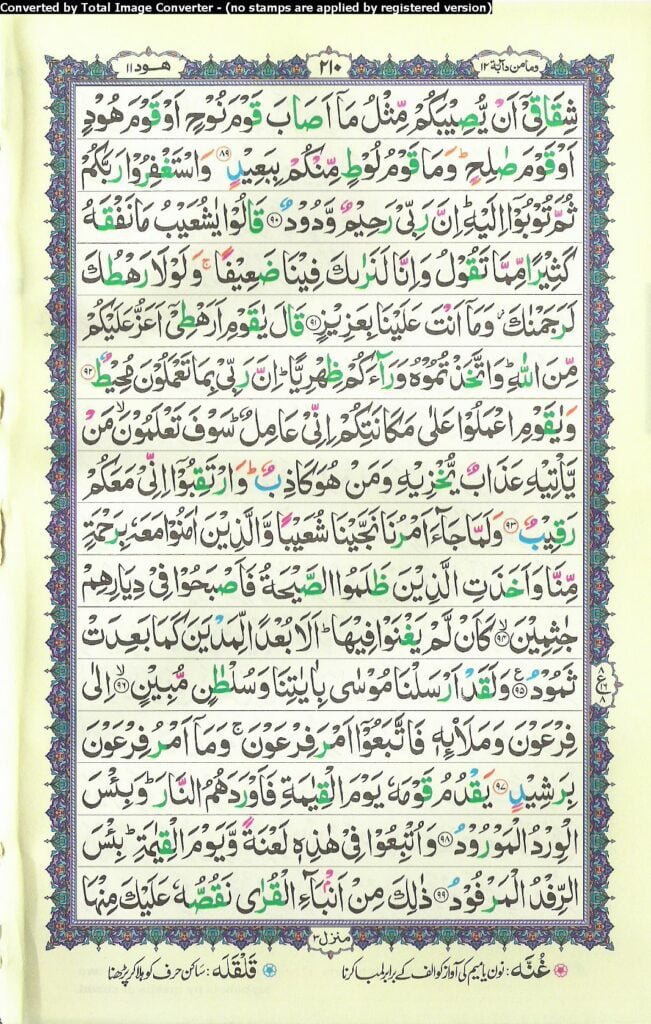 Converted by Total Image Converter - (no stamps are applied by registered version)
ومامن دآبة ١٢
٢١٠
هود ١١
شِقَاقِیْۤ اَنْ یُّصِیْبَكُمْ مِّثْلُ مَاۤ اَصَابَ قَوْمَ نُوْحٍ اَوْ قَوْمَ هُوْدٍ
اَوْ قَوْمَ صٰلِحٍ ؕ وَمَا قَوْمُ لُوْطٍ مِّنْكُمْ بِبَعِیْدٍ ﴿۸۹﴾ وَاسْتَغْفِرُوْا رَبَّكُمْ
ثُمَّ تُوْبُوْۤا اِلَیْهِ ؕ اِنَّ رَبِّیْ رَحِیْمٌ وَّدُوْدٌ ﴿۹۰﴾ قَالُوْا یٰشُعَیْبُ مَا نَفْقَهُ
كَثِیْرًا مِّمَّا تَقُوْلُ وَاِنَّا لَنَرٰىكَ فِیْنَا ضَعِیْفًا ۚ وَلَوْلَا رَهْطُكَ
لَرَجَمْنٰكَ ؗ وَمَاۤ اَنْتَ عَلَیْنَا بِعَزِیْزٍ ﴿۹۱﴾ قَالَ یٰقَوْمِ اَرَهْطِیْۤ اَعَزُّ عَلَیْكُمْ
مِّنَ اللّٰهِ ؕ وَاتَّخَذْتُمُوْهُ وَرَآءَكُمْ ظِهْرِیًّا ؕ اِنَّ رَبِّیْ بِمَا تَعْمَلُوْنَ مُحِیْطٌ ﴿۹۲﴾
وَیٰقَوْمِ اعْمَلُوْا عَلٰی مَكَانَتِكُمْ اِنِّیْ عَامِلٌ ؕ سَوْفَ تَعْلَمُوْنَ ۙ مَنْ
یَّاْتِیْهِ عَذَابٌ یُّخْزِیْهِ وَمَنْ هُوَ كَاذِبٌ ؕ وَارْتَقِبُوْۤا اِنِّیْ مَعَكُمْ
رَقِیْبٌ ﴿۹۳﴾ وَلَمَّا جَآءَ اَمْرُنَا نَجَّیْنَا شُعَیْبًا وَّالَّذِیْنَ اٰمَنُوْا مَعَهٗ بِرَحْمَةٍ
مِّنَّا وَاَخَذَتِ الَّذِیْنَ ظَلَمُوا الصَّیْحَةُ فَاَصْبَحُوْا فِیْ دِیَارِهِمْ
جٰثِمِیْنَ ﴿۹۴﴾ ۙ كَاَنْ لَّمْ یَغْنَوْا فِیْهَا ؕ اَلَا بُعْدًا لِّمَدْیَنَ كَمَا بَعِدَتْ
ثَمُوْدُ ﴿۹۵﴾ ع وَلَقَدْ اَرْسَلْنَا مُوْسٰی بِاٰیٰتِنَا وَسُلْطٰنٍ مُّبِیْنٍ ﴿۹۶﴾ ۙ اِلٰی
فِرْعَوْنَ وَمَلَا۟ىِٕهٖ فَاتَّبَعُوْۤا اَمْرَ فِرْعَوْنَ ۚ وَمَاۤ اَمْرُ فِرْعَوْنَ
بِرَشِیْدٍ ﴿۹۷﴾ یَقْدُمُ قَوْمَهٗ یَوْمَ الْقِیٰمَةِ فَاَوْرَدَهُمُ النَّارَ ؕ وَبِئْسَ
الْوِرْدُ الْمَوْرُوْدُ ﴿۹۸﴾ وَاُتْبِعُوْا فِیْ هٰذِهٖ لَعْنَةً وَّیَوْمَ الْقِیٰمَةِ ؕ بِئْسَ
الرِّفْدُ الْمَرْفُوْدُ ﴿۹۹﴾ ذٰلِكَ مِنْ اَنْۢبَآءِ الْقُرٰی نَقُصُّهٗ عَلَیْكَ مِنْهَا
منزل ۳
غُنَّه: نون یا میم کی آواز کو الف کے برابر لمبا کرنا
قَلْقَلَه: ساکن حرف کو ہلا کر پڑھنا